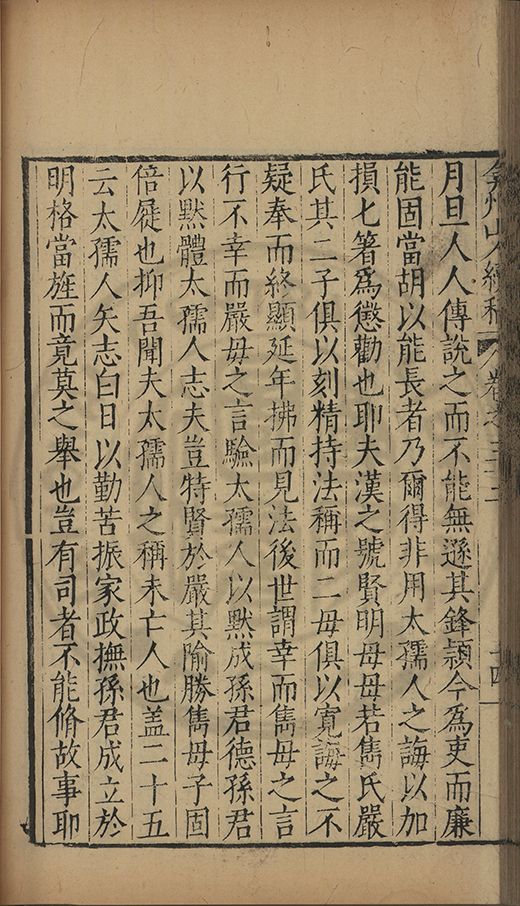 弇州山人續稿 卷之三十二 十四
月旦人人傳說之而不能無遜其鋒頴今爲吏而廉
能固當胡以能長者乃爾得非用太孺人之誨以加
損匕箸爲懲勸也耶夫漢之號賢明母毋若雋氏嚴
氏其二子俱以刻精持法稱而二母俱以寬誨之不
疑奉而終顯延年拂而見法後世謂幸而雋母之言
行不幸而嚴母之言驗太孺人以默成孫君德孫君
以默體太孺人志夫豈特賢於嚴其隃勝雋母子固
倍屣也抑吾聞夫太孺人之稱未亡人也盖二十五
云太孺人矢志白日以勤苦振家政撫孫君成立於
明格當旌而竟莫之舉也豈有司者不能脩故事耶